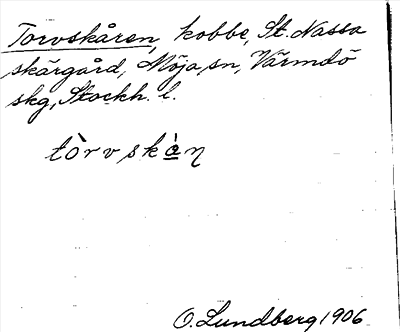 Torvskåren, kobbe, St. Nassa
skärgård, Möja sn, Värmdö
skg, Stockh. l.
tòrvskàη
O. Lundberg 1906.